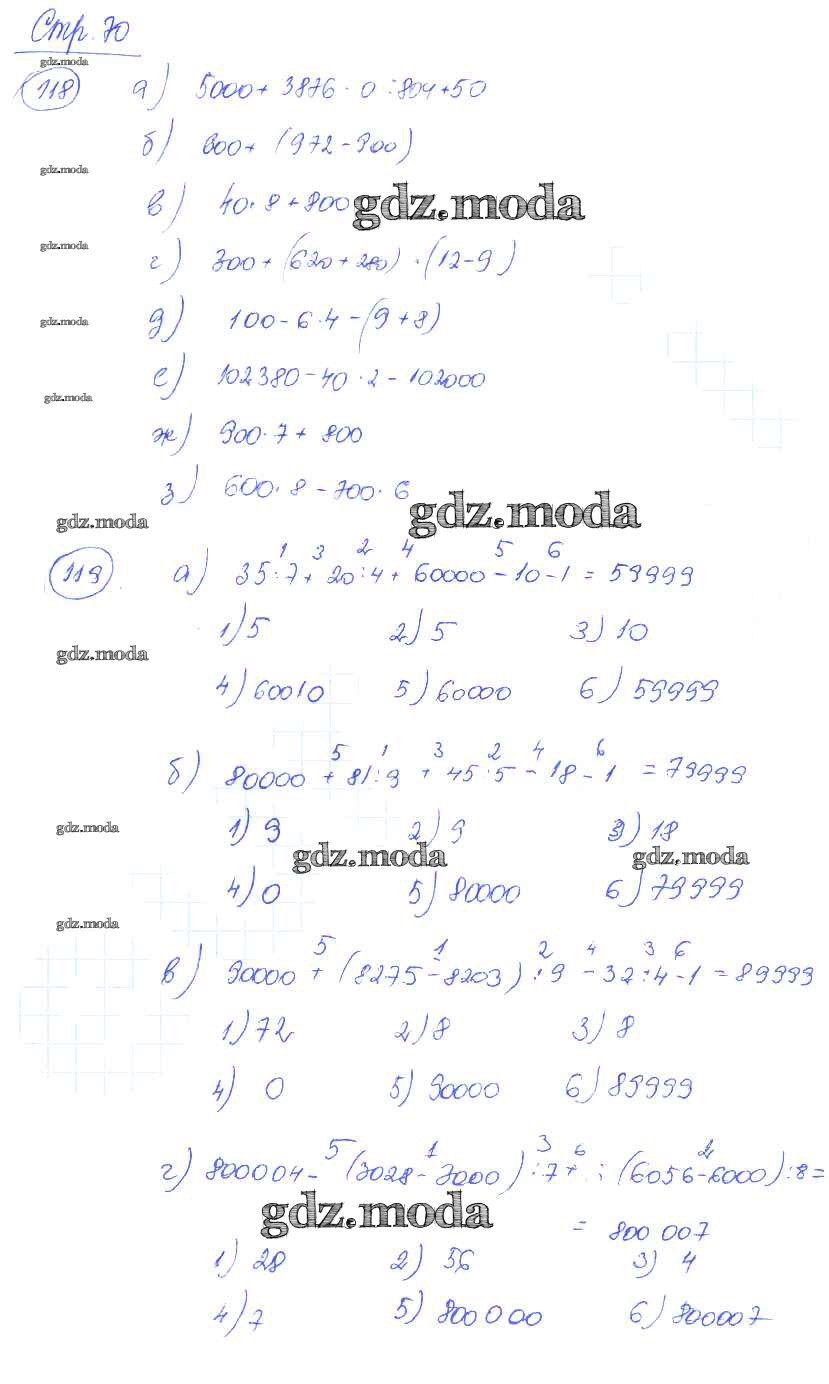 Стр. 70
gdz.moda
118 а) 5000 + 3876 · 0 : 804 + 50
б) 600 + (972 - 900)
gdz.moda
в) 40 · 8 + 800 gdz.moda
gdz.moda
г) 300 + (620 + 280) · (12 - 9)
gdz.moda
д) 100 - 6 · 4 - (9 + 8)
е) 102380 - 40 · 2 - 102000
gdz.moda
ж) 900 · 7 + 800
з) 600 · 8 - 700 · 6
gdz.moda gdz.moda
1 3 2 4 5 6
119 а) 35 : 7 + 20 : 4 + 60000 - 10 - 1 = 59999
1) 5 2) 5 3) 10
gdz.moda
4) 60010 5) 60000 6) 59999
5 1 3 2 4 6
б) 80000 + 81 : 9 + 45 : 5 - 18 - 1 = 79999
gdz.moda 1) 9 2) 9 3) 18
gdz.moda gdz.moda
4) 0 5) 80000 6) 79999
gdz.moda
5 1 2 4 3 6
в) 90000 + (8275 - 8203) : 9 - 32 : 4 - 1 = 89999
1) 72 2) 8 3) 8
4) 0 5) 90000 6) 89999
5 1 3 6 2
г) 800004 - (7028 - 7000) : 7 + : (6056 - 6000) : 8 =
gdz.moda = 800 007
1) 28 2) 56 3) 4
4) 7 5) 800 000 6) 800007